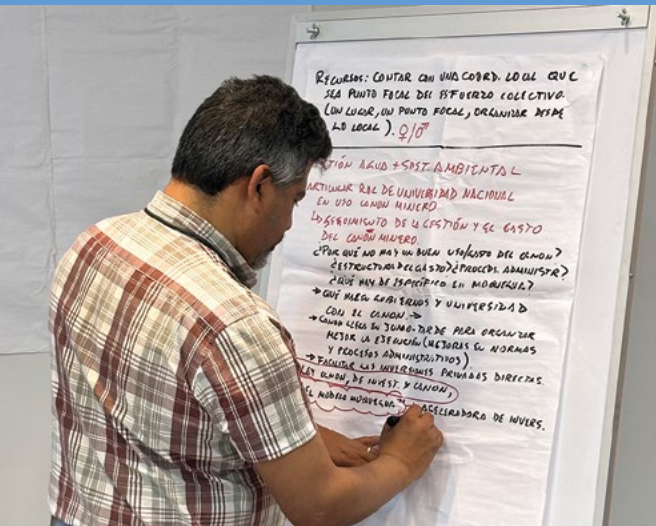 RECURSOS: CONTAR CON UNA COORD. LOCAL QUE
SEA PUNTO FOCAL DEL ESFUERZO COLECTIVO.
(UN LUGAR, UN PUNTO FOCAL, ORGANIZAR DESDE
LO LOCAL). ♀/♂
TIÓN AGUA + SOST. AMBIENTAL
ARTICULAR ROL DE UNIVERSIDAD NACIONAL
EN USO CANON MINERO
SEGUIMIENTO DE LA GESTIÓN Y EL GASTO
DEL CANON MINERO.
¿POR QUÉ NO HAY UN BUEN USO/GASTO DEL CANON?
¿ESTRUCTURA DEL GASTO? ¿PROCEDS. ADMINISTR?
¿QUÉ HAY DE ESPECÍFICO EN MOQUEGUA?
→ QUÉ HARÁ GOBIERNOS Y UNIVERSIDAD
CON EL CANON. →
→ CANON LLEGA EN JUNIO-TARDE PARA ORGANIZAR
MEJOR LA EJECUCIÓN (MEJORAS EN NORMAS
Y PROCESOS ADMINISTRATIVOS).
→ FACILITAR LAS INVERSIONES PRIVADAS DIRECTAS.
LEY CANON, DE INVEST. Y CANON,
EL MODELO MOQUEGUA" ACELERADORA DE INVERS.